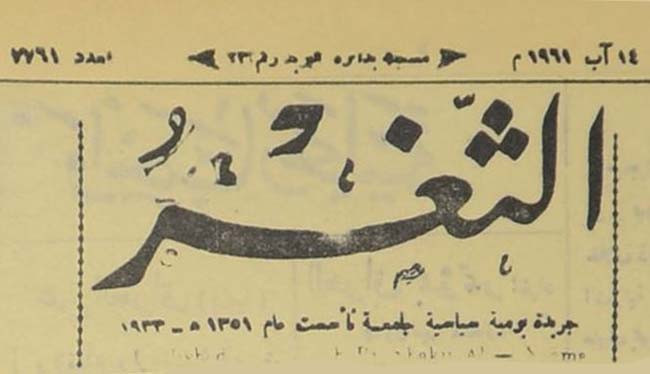 ١٤ آب ١٩٦١ م مسجلة بدائرة البريد رقم ٢٣ العدد ٧٧٦١
الثَّغْرُ
جريدة يومية سياسية جامعة تأسست عام ١٣٥١ ه - ١٩٣٣